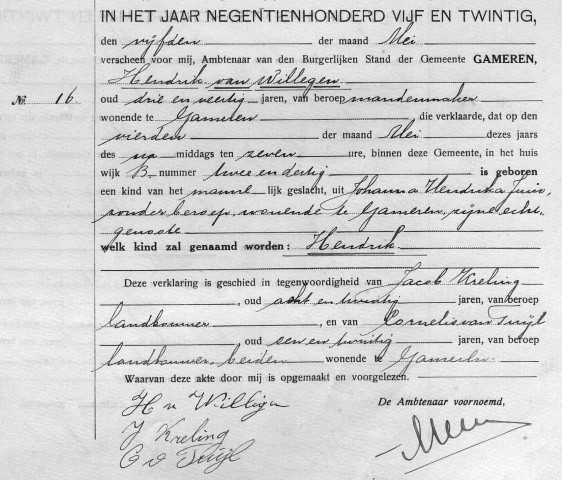 IN HET JAAR NEGENTIENHONDERD VIJF EN TWINTIG,
den vijfden der maand Mei
verscheen voor mij, Ambtenaar van den Burgerlijken Stand der Gemeente GAMEREN,
Hendrik van Willegen
No. 16. oud drie en veertig jaren, van beroep mandenmaker
wonende te Gameren, die verklaarde, dat op den
vierden der maand Mei dezes jaars
des na middags ten zeven ure, binnen deze Gemeente, in het huis
wijk B nummer twee en dertig is geboren
een kind van het manne lijk geslacht, uit Johanna Hendrika
zonder beroep, wonende te Gameren, zijne echt-
genoote
welk kind zal genaamd worden: Hendrik
Deze verklaring is geschied in tegenwoordigheid van Jacob Kreling
, oud acht en twintig jaren, van beroep
landbouwer, en van Cornelis van Tuijl
oud een en twintig jaren, van beroep
landbouwer, beiden wonende te Gameren.
Waarvan deze akte door mij is opgemaakt en voorgelezen.
De Ambtenaar voornoemd,
H v Willigen
J Kreling
C v Tuijl